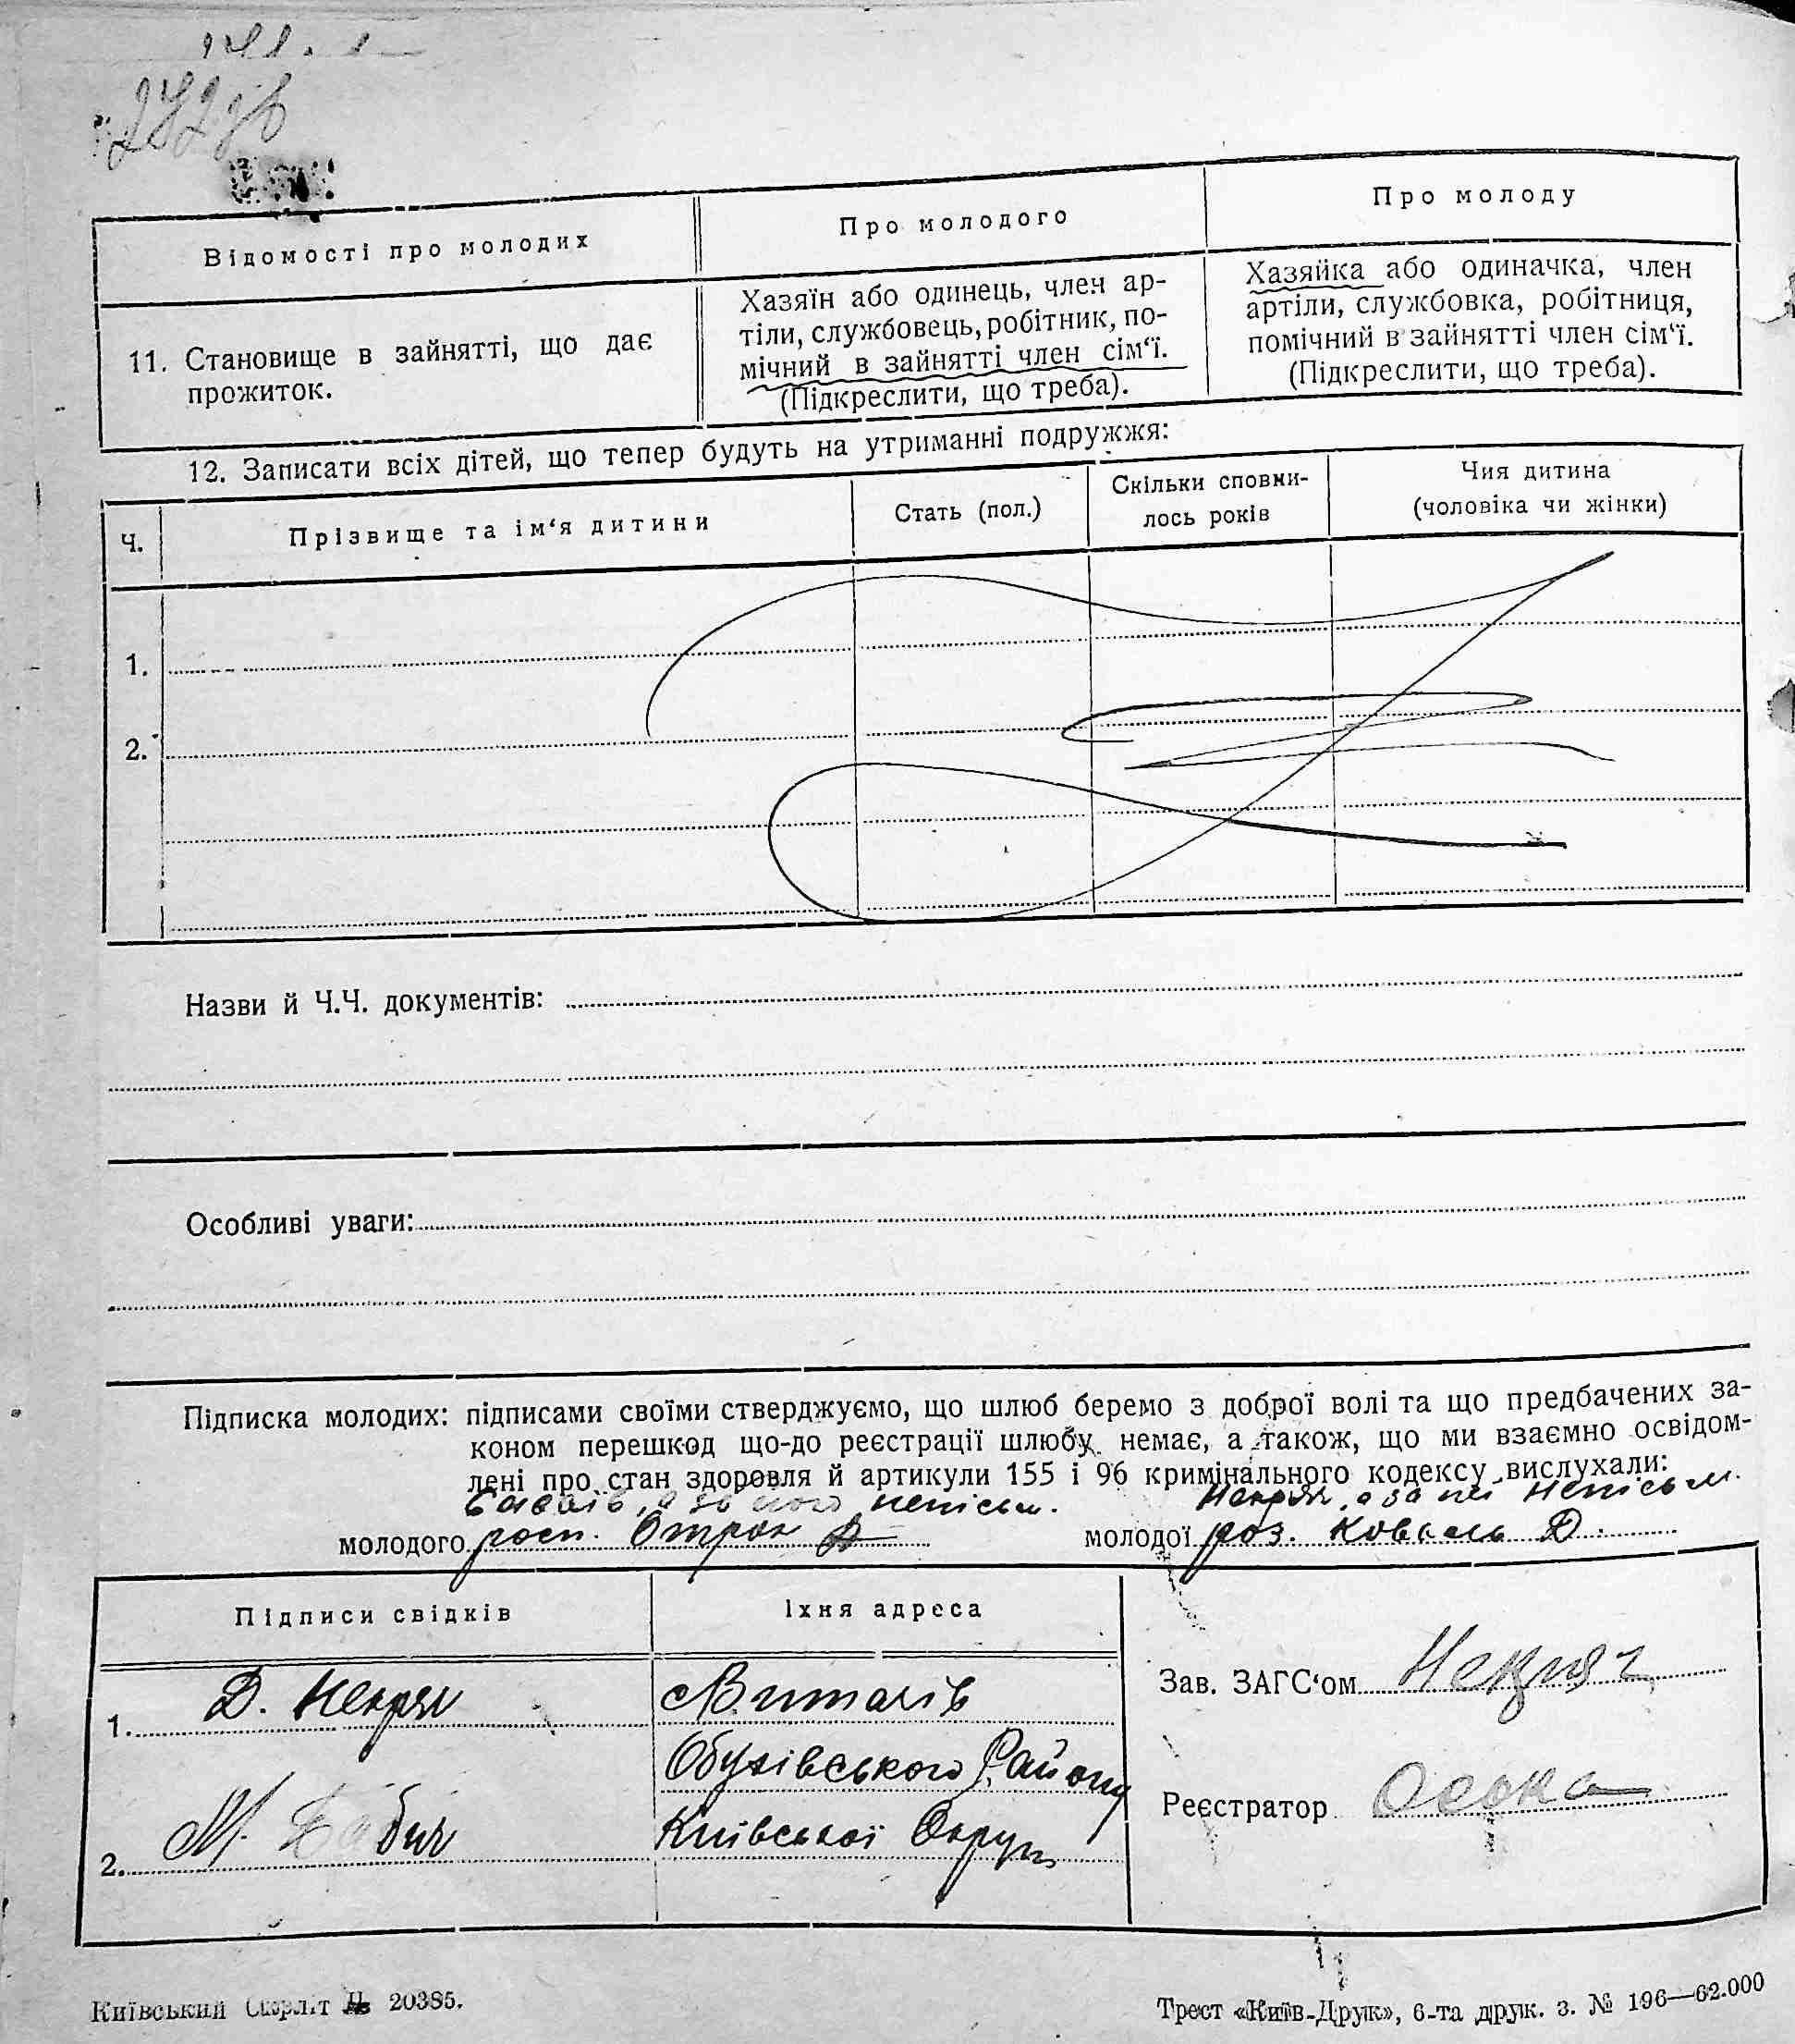 Відомості про молодих
Про молодого
Про молоду
11. Становище в зайнятті, що дає
прожиток.
Хазяїн або одинець, член ар-
тіли, службовець, робітник, по-
мічний в зайнятті член сім‘ї.
(Підкреслити, що треба).
Хазяйка або одиначка, член
артіли, службовка, робітниця,
помічний в зайнятті член сім‘ї.
(Підкреслити, що треба).
12. Записати всіх дітей, що тепер будуть на утриманні подружжя:
Ч.
Прізвище та ім‘я дитини
Стать (пол.)
Скільки сповни-
лось років
Чия дитина
(чоловіка чи жінки)
1.
2.
Назви й Ч.Ч. документів:
Особливі уваги:
Підписка молодих: підписами своїми стверджуємо, що шлюб беремо з доброї волі та що предбачених за-
коном перешкод що-до реєстрації шлюбу немає, а також, що ми взаємно освідом-
лені про стан здоровля й артикули 155 і 96 кримінального кодексу вислухали:
його неписьм.
а за неї неписьм.
молодого росп. Отрох
молодої роз. Коваль Д.
Підписи свідків
Їхня адреса
1. Д. Некряч
с Витачів
Обухівського Району
2. М. Бабич
Київської Округи
Зав. ЗАГС‘ом Некряч
Реєстратор
Київський Окрліт № 20385.
Трест «Київ-Друк», 6-та друк. з. № 196—62.000